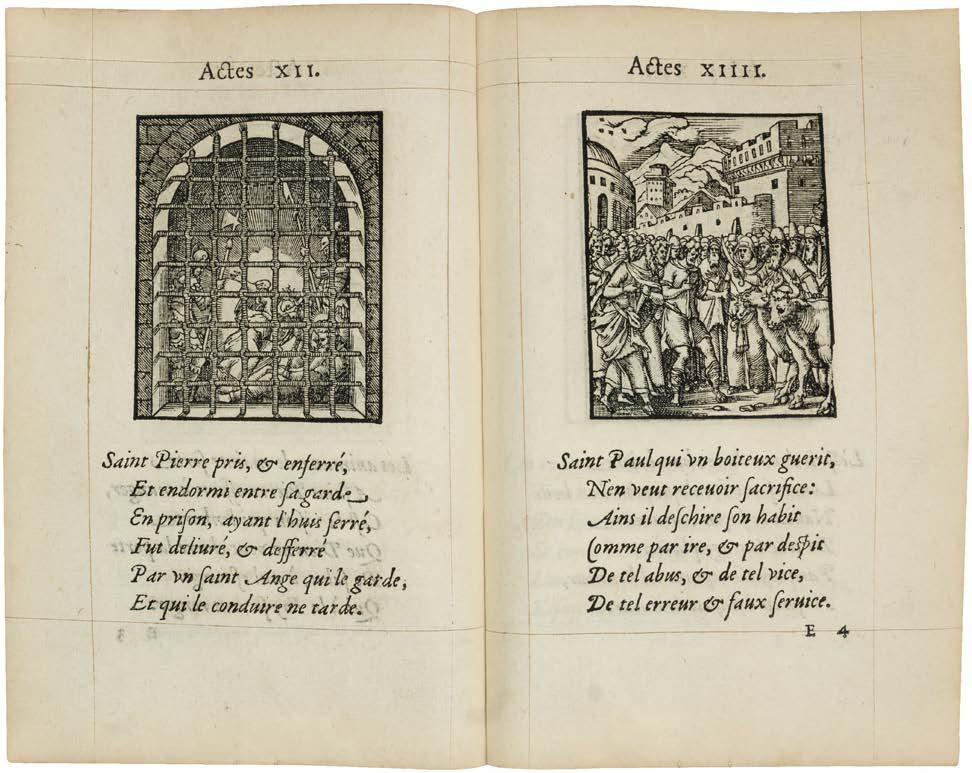 Actes XII.
Saint Pierre pris, & enferré,
Et endormi entre sa garde
En prison, ayant l'huis serré,
Fut deliuré, & defferré
Par vn saint Ange qui le garde,
Et qui le conduire ne tarde.
Actes XIIII.
Saint Paul qui vn boiteux guerit,
N'en veut receuoir sacrifice:
Ains il deschire son habit
Comme par ire, & par despit
De tel abus, & de tel vice,
De tel erreur & faux seruice.
E 4